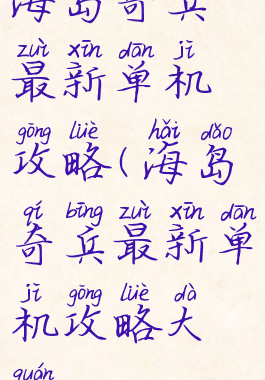 海岛奇兵
zuì xīn dān jī
最新单机
gōng lüè hǎi dǎo
攻略(海岛
qí bīng zuì xīn dān
奇兵最新单
jī gōng lüè dà
机攻略大
quán